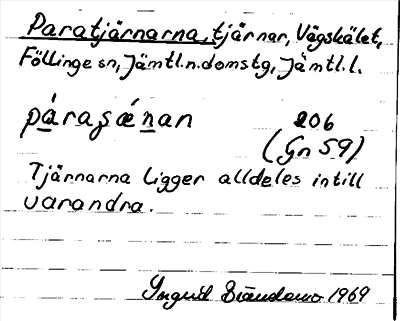 Paratjärnarna, tjärnar, Vågskälet,
Föllinge sn, Jämtl.n.domstg, Jämtl.l.
páraʂǽnan 206
(Gn 59)
Tjärnarna ligger alldeles intill
varandra.
Ingrid 1969